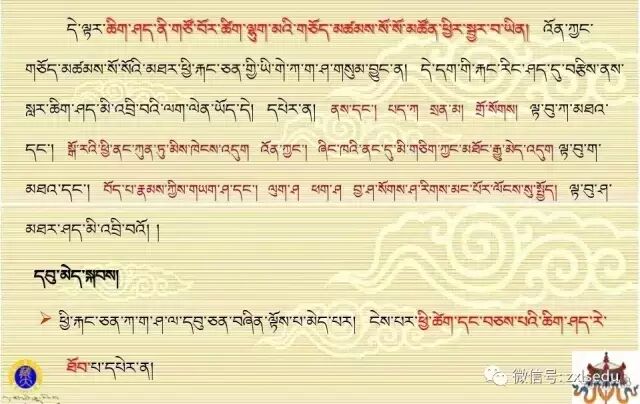 དེ་ལྟར་ཆིག་ཤད་ནི་གཙོ་བོར་ཚིག་ལྷུག་མའི་གཅོད་མཚམས་སོ་སོ་མཚོན་ཕྱིར་སྦྱར་བ་ཡིན། འོན་ཀྱང་
གཅོད་མཚམས་སོ་སོའི་མཐར་ཕྱི་རྐང་ཅན་གྱི་ཡི་གེ་ཀ་ག་ཤ་གསུམ་བྱུང་ན། དེ་དག་གི་རྐང་རིང་ཤད་དུ་བརྩིས་ནས་
སླར་ཆིག་ཤད་མི་འབྲི་བའི་ལག་ལེན་ཡོད་དེ། དཔེར་ན། ནས་དང་། པད་ཀ སྲན་མ། གྲོ་སོགས། ལྟ་བུ་ཀ་མཐའ་
དང་། སྒོ་རའི་ཕྱི་ནང་ཀུན་ཏུ་མིས་ཁེངས་འདུག འོན་ཀྱང་། ཞིང་ཁའི་ནང་དུ་མི་གཅིག་ཀྱང་མཐོང་རྒྱུ་མེད་འདུག ལྟ་བུ་ག་
མཐའ་དང་། བོད་པ་རྣམས་ཀྱིས་གཡག་ཤ་དང་། ལུག་ཤ ཕག་ཤ བྱ་ཤ་སོགས་ཤ་རིགས་མང་པོར་ལོངས་སུ་སྤྱོད། ལྟ་བུ་ཤ་
མཐར་ཤད་མི་འབྲི་བའོ། །
དབུ་མེད་སྐབས།
ཕྱི་རྐང་ཅན་ཀ་ག་ཤ་ལ་དབུ་ཅན་བཞིན་ལྟོས་པ་མེད་པར། ངེས་པར་ཕྱི་ཚེག་དང་བཅས་པའི་ཆིག་ཤད་རེ་
ཐོབ་པ་དཔེར་ན།
微信号: zxlsedu